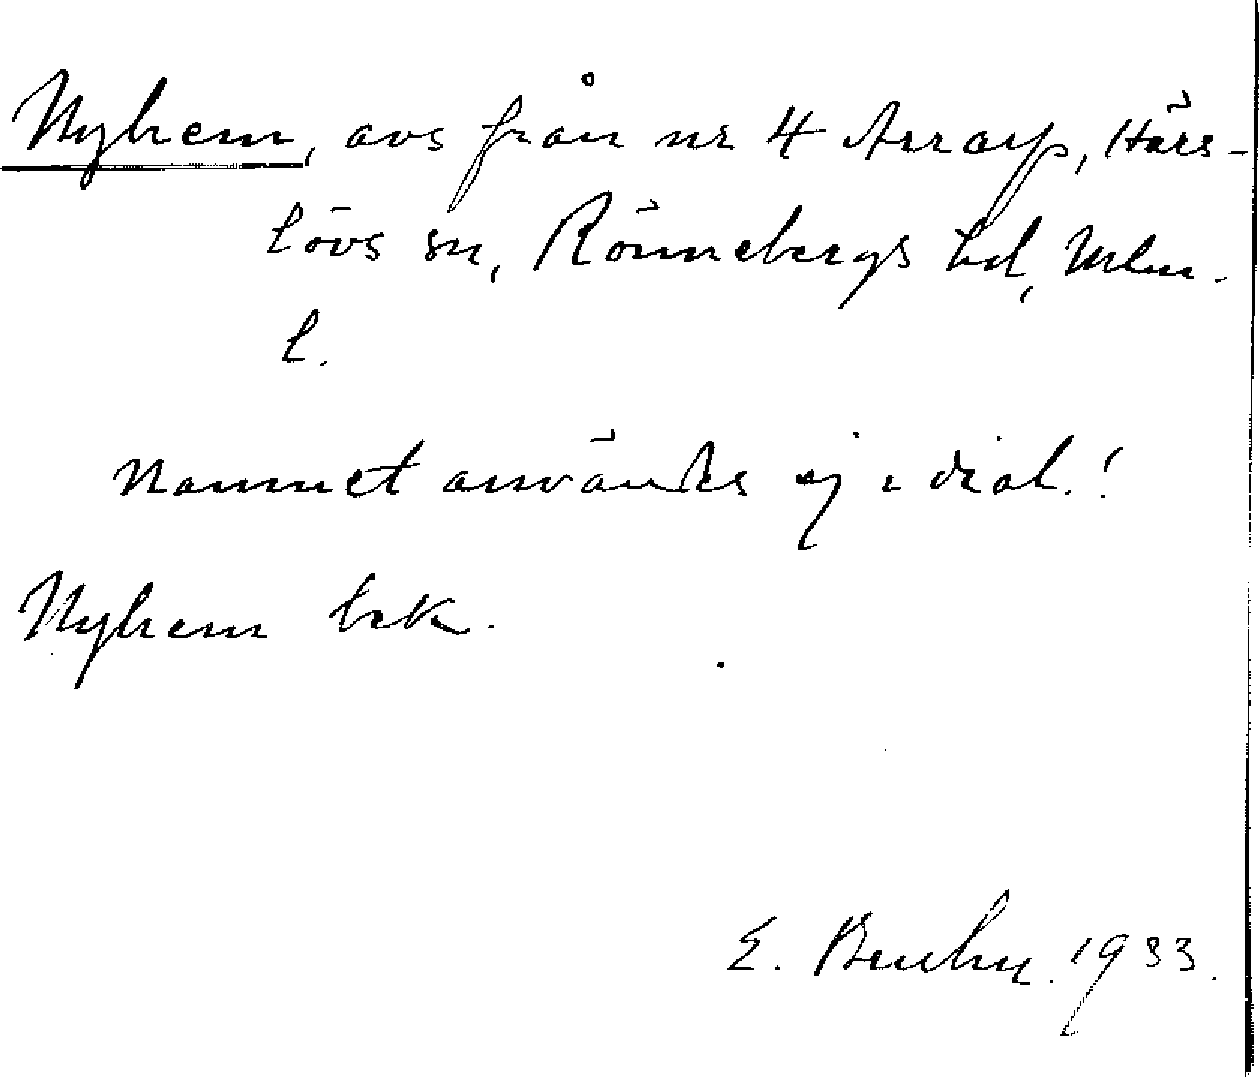 Nyhem, avs från nr 4 Asrarp, Härs-
lövs sn, Rönnebergs hd, Mlm.
l.
Namnet användes ej i dial.!
Nyhem bek.
E. Bruhn. 1933.